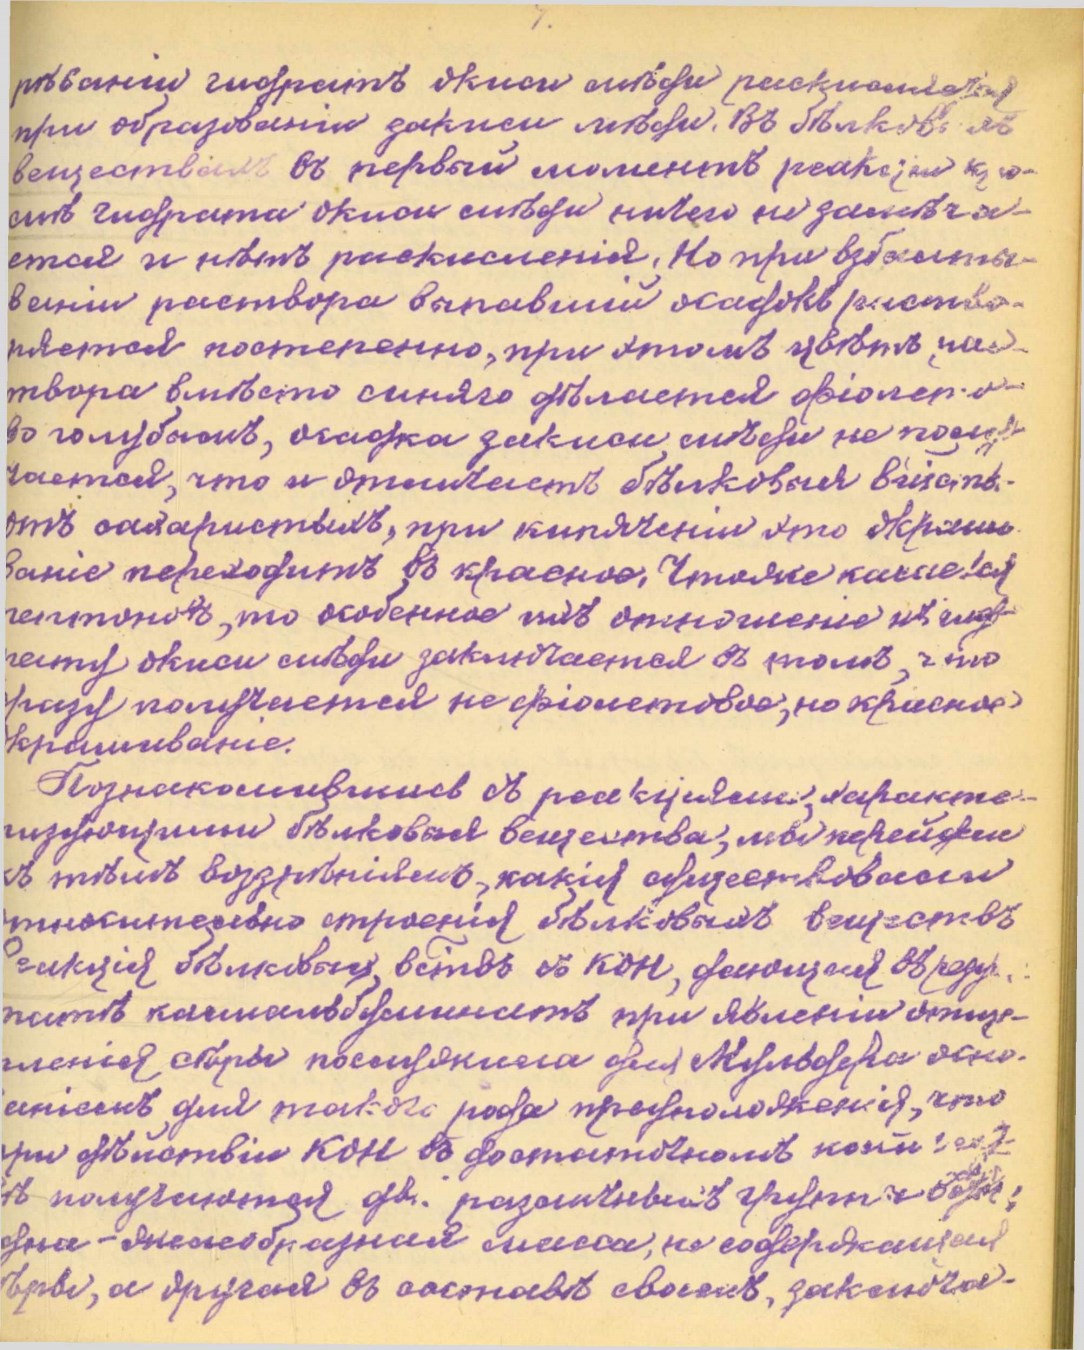 7.
рѣваніи гидратъ окиси мѣди раскисляется
при образованіи закиси мѣди. Въ бѣлковыхъ
веществахъ въ первый моментъ реакціи кро-
мѣ гидрата окиси мѣди ничего не замѣча-
ется и нѣтъ раскисленія. Но при взбалты-
ваніи раствора выпавшій осадокъ раство-
ряется постепенно, при этомъ цвѣтъ рас-
твора вмѣсто синяго дѣлается фіолето-
во голубымъ, осадка закиси мѣди не полу-
чается, что и отличаетъ бѣлковыя вещества
отъ сахаристыхъ, при кипяченіи это окраши-
ваніе переходитъ въ красное. Чтоже касается
пептоновъ, то особенное ихъ отношеніе къ гид-
рату окиси мѣди заключается въ томъ, что
сразу получается не фіолетовое, но красное
окрашиваніе.
Познакомившись съ реакціями, характе-
ризующими бѣлковыя вещества, мы перейдем
къ тѣмъ воззрѣніямъ, какія существовали
относительно строенія бѣлковыхъ веществъ
Реакція бѣлковыхъ вствъ съ КОН, дающая въ резул.
татѣ калиальбуминатъ при явленіи отще-
пленія сѣры послужила для Мульдера осно-
ваніемъ для такого рода предположенія, что
при дѣйствіи КОН въ достаточномъ колич
получаются двѣ различныхъ группы
одна - желеобразная масса, не содержащая
сѣры, а другая въ составѣ своемъ, заключа-